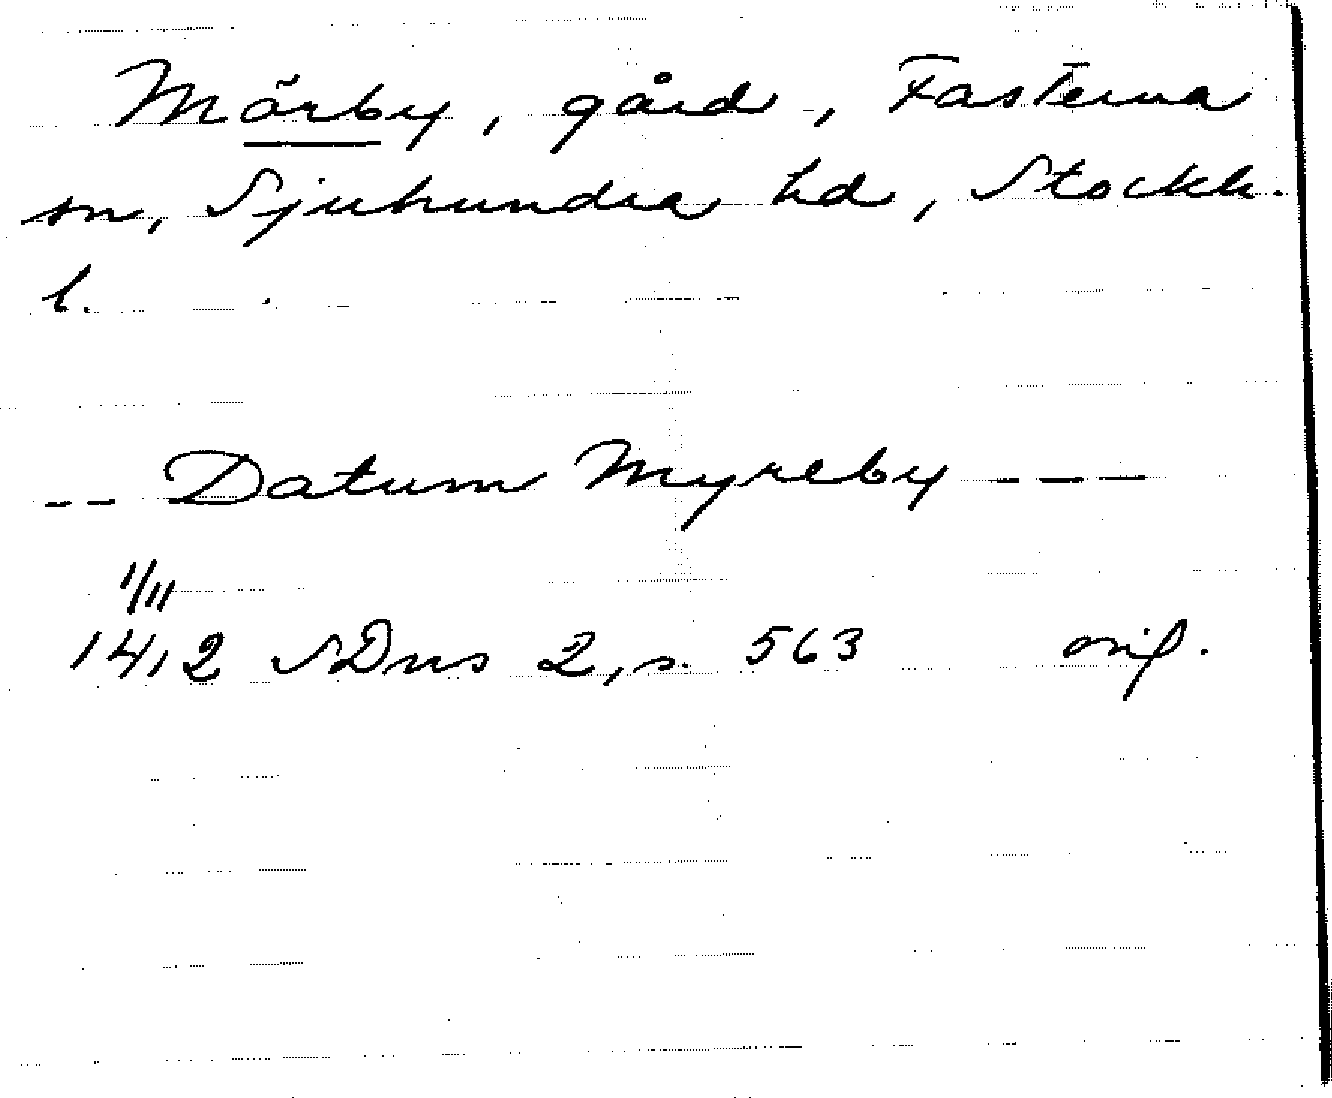 Mörby, gård, Fasterna
sn, Sjuhundra hd, Stockh.
l.
-- Datum Myreby ---
1/11
1412 SDns 2, s. 563 orig.